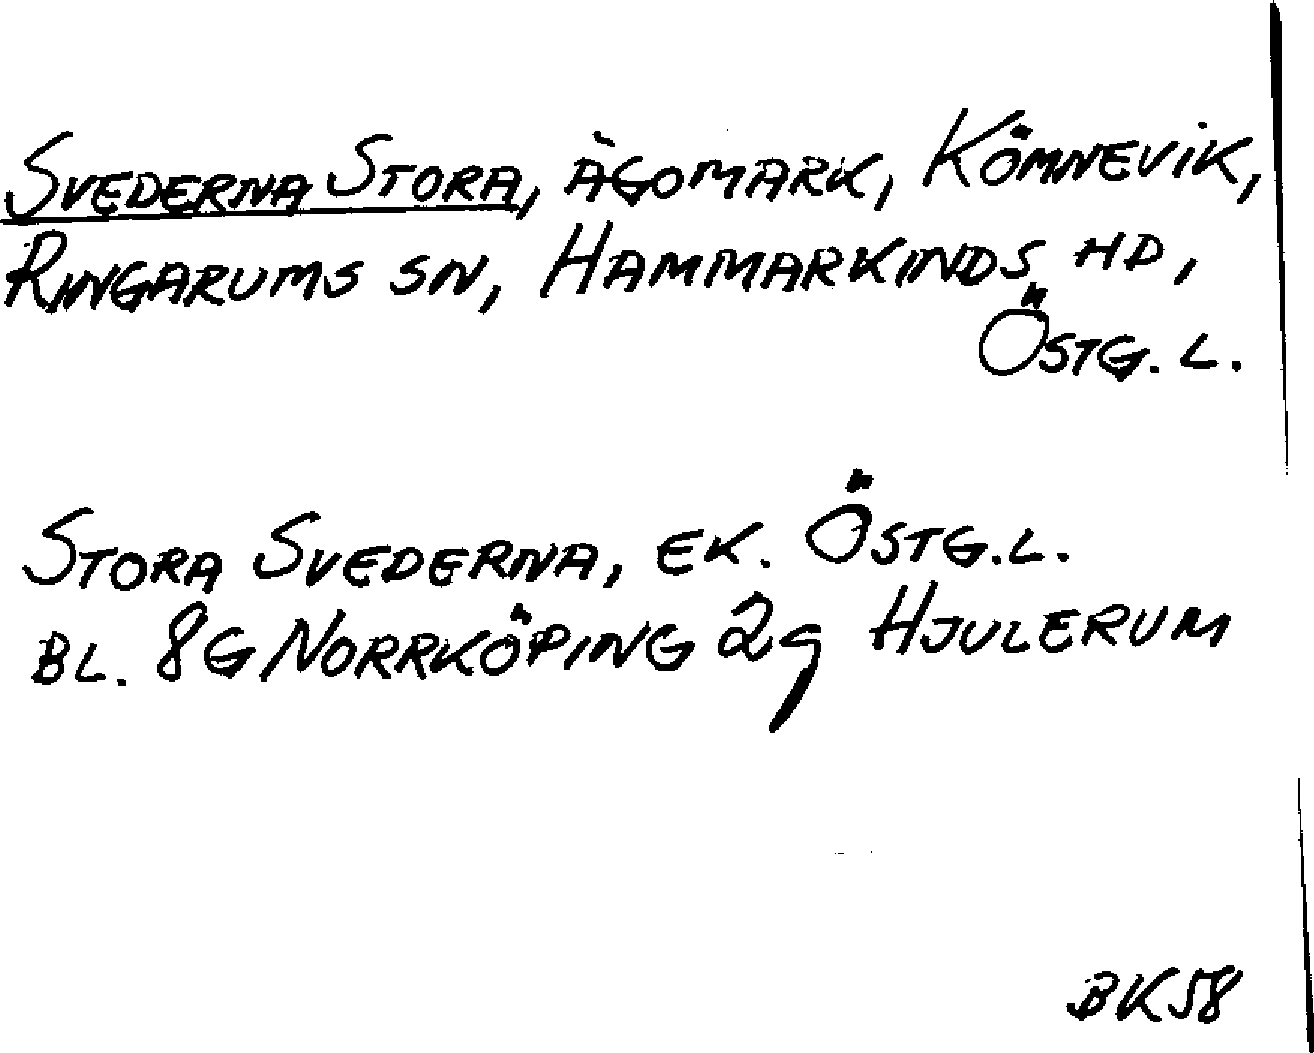 SVEDERNA STORA, ÄGOMARK, KÖMNEVIK,
RINGARUMS SN, HAMMARKINDS HD,
ÖSTG. L.
STORA SVEDERNA, EK. ÖSTG.L.
BL. 8G NORRKÖPING 2g HJULERUM
BK58